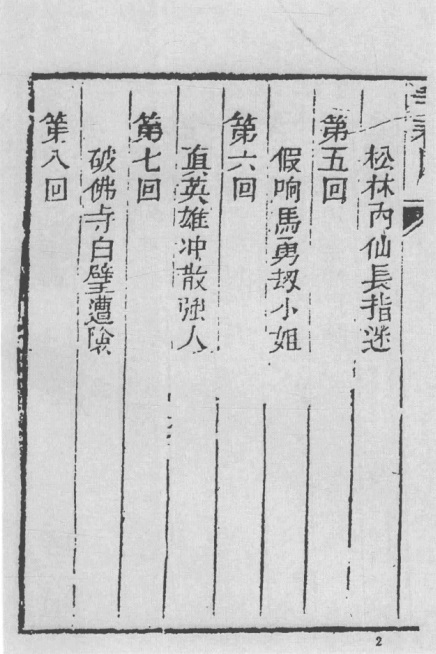 松林內仙長指迷
第五回
假响馬勇刼小姐
第六回
真英雄冲散強人
第七回
破佛寺白璧遭險
第八回
2